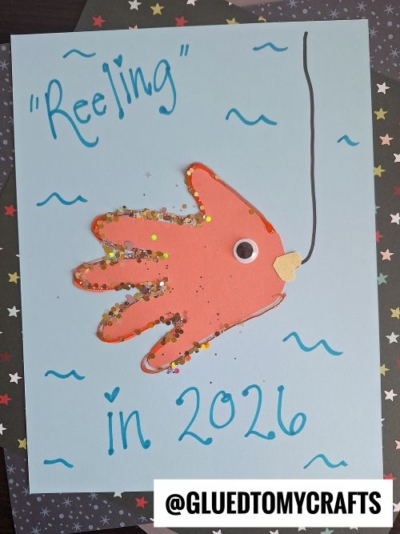 "Reeling"
in 2026
@GLUEDTOMYCRAFTS